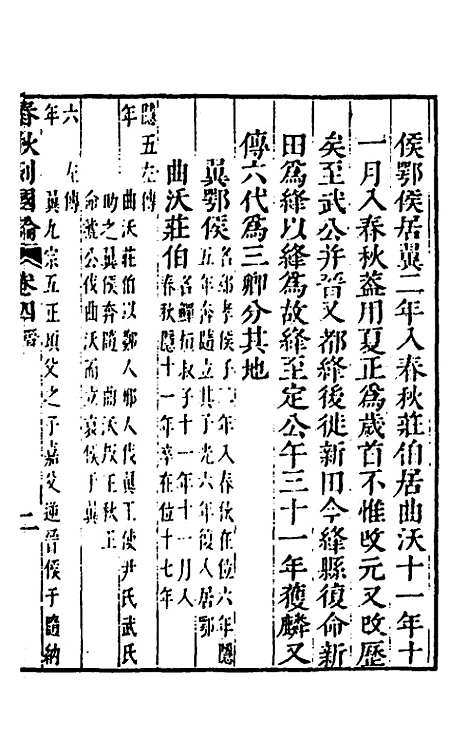 侯鄂侯居翼二年入春秋莊伯居曲沃十一年十
一月入春秋葢用夏正爲歲首不惟改元又改歷
矣至武公并晉又都絳後徙新田今絳縣復命新
田爲絳以絳爲故絳至定公午三十一年獲麟又
傳六代爲三卿分其地
翼鄂侯名郤孝侯子二年入春秋在位六年隱
五年奔隨立其子光六年復入居鄂
曲沃莊伯名鱓桓叔子十一年十一月入
春秋隱十一年卒在位十七年
隱五左傳
年曲沃莊伯以鄭人邢人伐翼王使尹氏武氏
助之翼侯奔隨 曲沃叛王秋王
命虢公伐曲沃而立哀侯于翼
六 左傳
年翼九宗五正頃父之子嘉父逆晉侯于隨納
春秋列國論 卷四晉 二